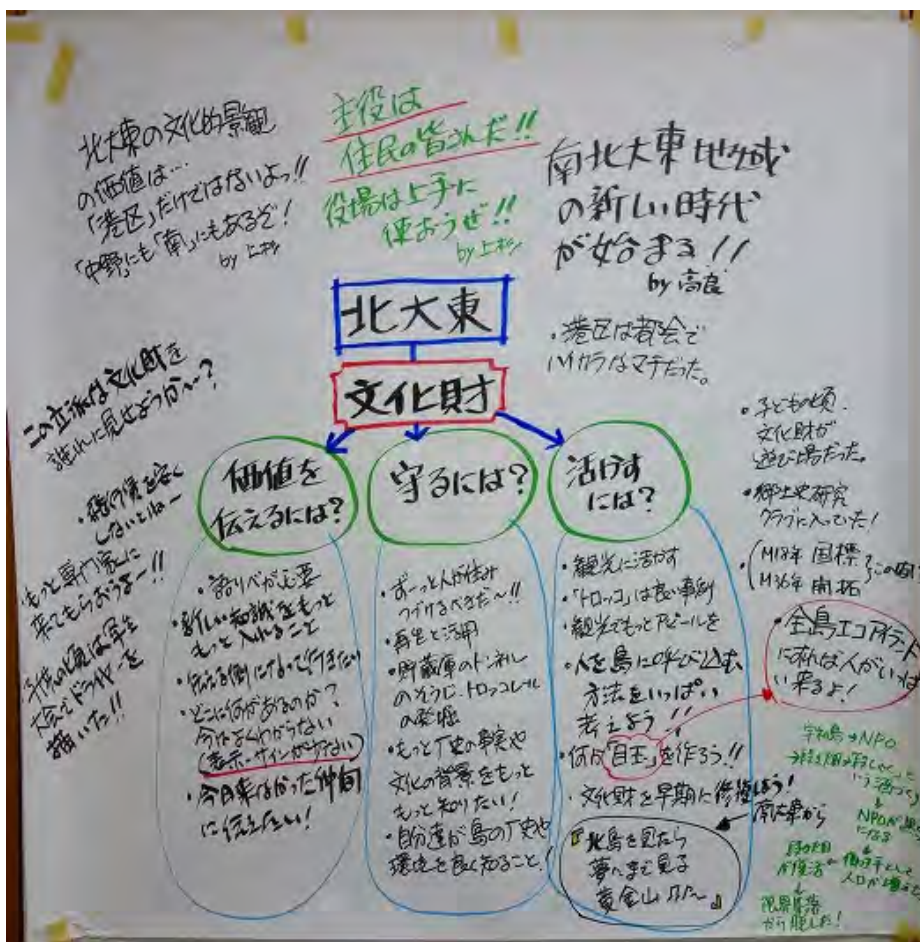 北大東の文化的景観
の価値は…
「港区」だけではないよっ!!
「中野」にも「南」にもあるぞ！
by 上杉
主役は
住民の皆さんだ!!
役場は上手に
使おうぜ!!
by 上杉
南北大東地域
の新しい時代
が始まる!!
by 高良
・港区は都会で
ハイカラなマチだった。
北大東
文化財
この立派な文化財を
誰れに見せようか〜？
しないとねー
・もっと専門家に
来てもらおうよー!!
描いた!!
価値を
伝えるには？
・語りべが必要
・新しい知識をもっと
もっと入れること
・伝える側になって行きたい
・どこに何があるのか？
今はよくわからない
(表示・サインが少ない)
・今日来なかった仲間
に伝えたい！
守るには？
・ずーっと人が住み
つづけるべきだ〜!!
・再生と活用
・貯蔵庫のトンネル
のそうじ・トロッコレール
の発掘
・もっと厂史の事実や
文化の背景をもっと
もっと知りたい！
・自分達が島の厂史や
環境を良く知ること！
活かす
には？
・観光に活かす
・「トロッコ」は良い事例
・観光でもっとアピールを
・人を島に呼び込む
方法をいっぱい
考えよう!!
・何か「目玉」を作ろう!!
・文化財を早期に修復しよう！
南大東から
『北島を見たら
夢にまで見る
黄金山
・子どもの頃、
文化財が
遊び場だった。
・郷土史研究
クラブに入っていた！
M18年 国標
M36年 開拓
・全島エコアイランド
になれば人がいっぱ
い来るよ！
→NPO
NPOが
になる
が復活
人口が増
限界集落
から脱した！